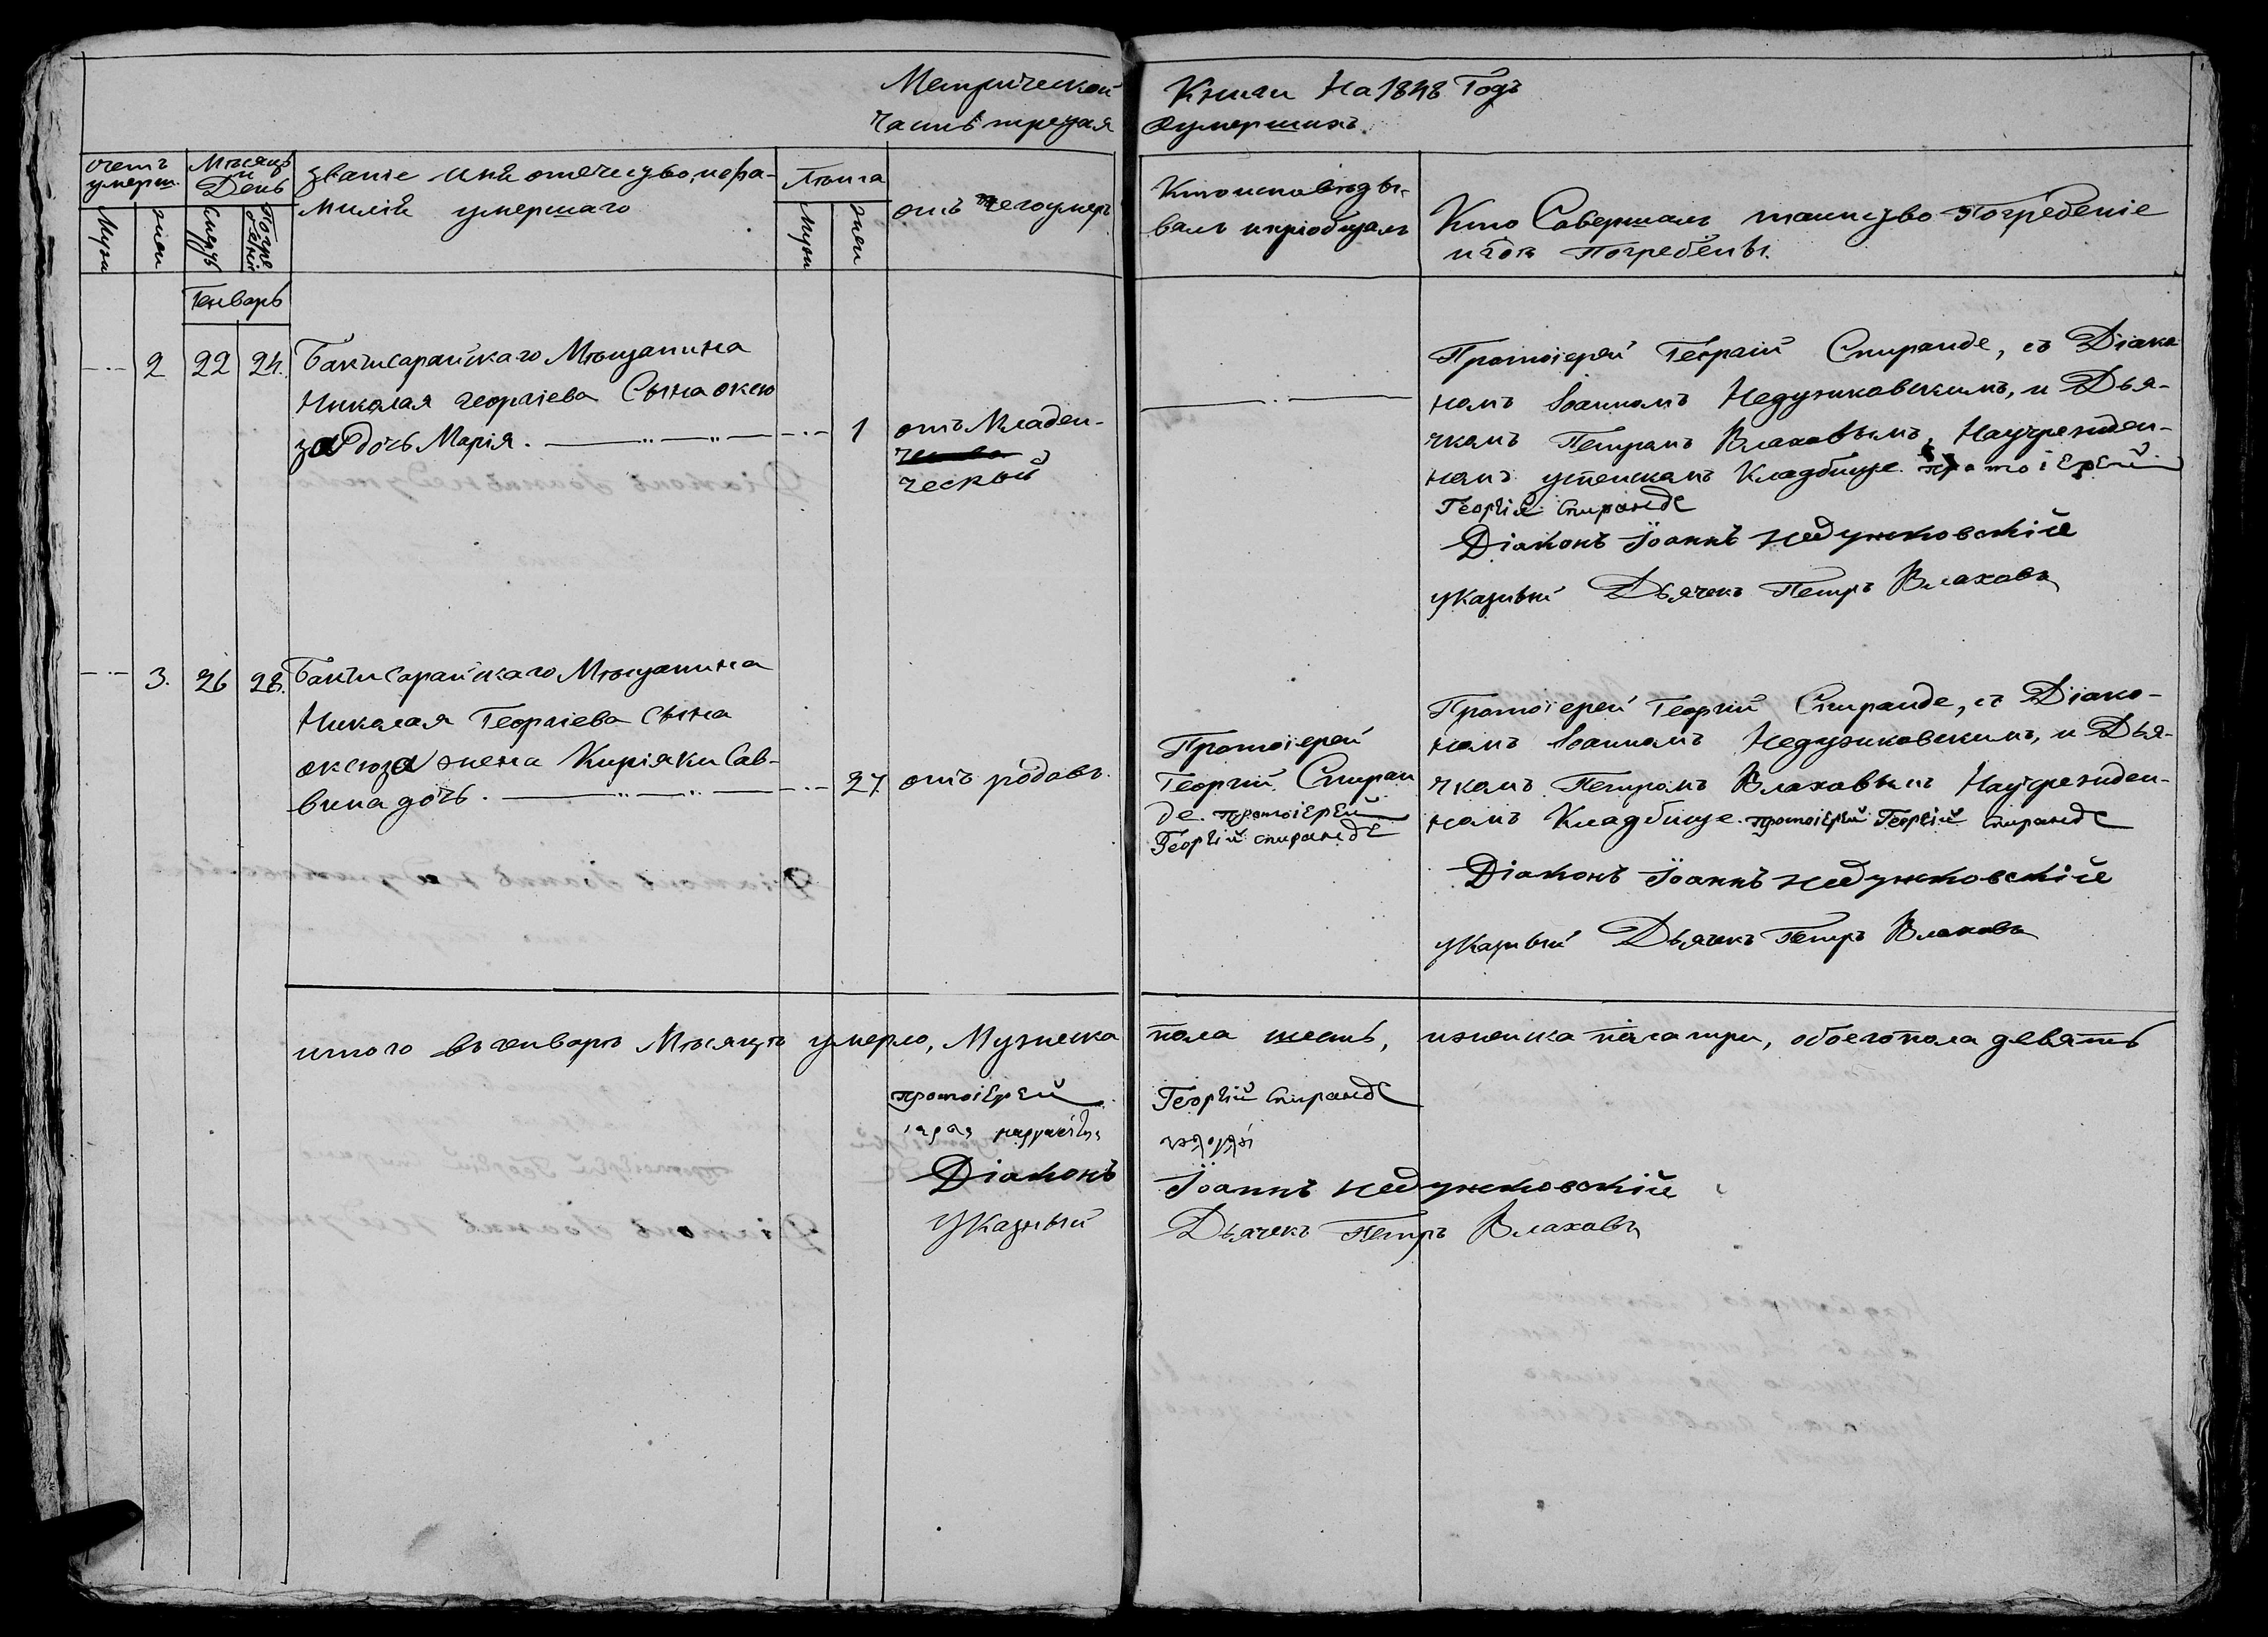 Метрической Книги На 1848 Годъ
Часть третая Оумершихъ.
счетъ умерш.
Мѣсяцъ и День
званіе имя отечество, ифа-
милія умершаго
Лѣта
отъ чего умеръ
Кто исповѣды-
валъ ипріобщалъ
Кто Совершалъ таинство Погребеніе
игдѣ Погребены.
Мужи
жен
Смерть
Погре бенія
Мужи
жен
Генварь
2 22 24.
Бакчисарайскаго Мѣщанина
Николая георгіева Сына оксю
за дочь Марія.
1
отъ Младен-
ческой
Протоіерей Георгій Спиранде, съ Діако
номъ Іоанномъ Недужковскимъ, и Дья-
чкомъ Петромъ Влаховымъ, Научрежден-
номъ успенскомъ Кладбище. протоіерей
Георгій Спиранде
Діаконъ Іоаннъ недужковскій
Указный Дьячекъ Петръ Влаховъ
3. 26 28.
Бакчисарайскаго Мѣщанина
Николая Георгіева Сына
оксюза жена Киріяки Сав-
вина дочь.
27 отъ родовъ.
Протоіерей
Георгій Спиран
де. протоіерей
Георгій спиранде
Протоіерей Георгій Спиранде, съ Діако-
номъ Іоанномъ Недужковскимъ, и Дья-
чкомъ Петромъ Влаховымъ Научрежден-
номъ Кладбище. протоіерей Георгій спиранде
Діаконъ Іоаннъ недужковскій
Указный Дьячекъ Петръ Влаховъ
итого въ генварѣ Мѣсяцѣ умерло, Мужеска пола шесть, иженска пола три, обоегопола девять
протоіерей Георгій Спиранде
Діаконъ Іоаннъ недужковскій
Указный Дьячекъ Петръ Влаховъ